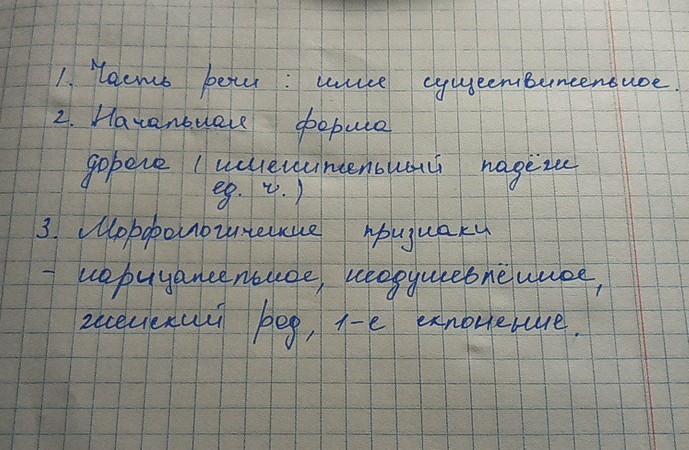 1. Часть речи : имя существительное.
2. Начальная форма
дорога (именительный падёж
ед. ч.)
3. Морфологические признаки
- нарицательное, неодушевлённое,
женский род, 1-е склонение.